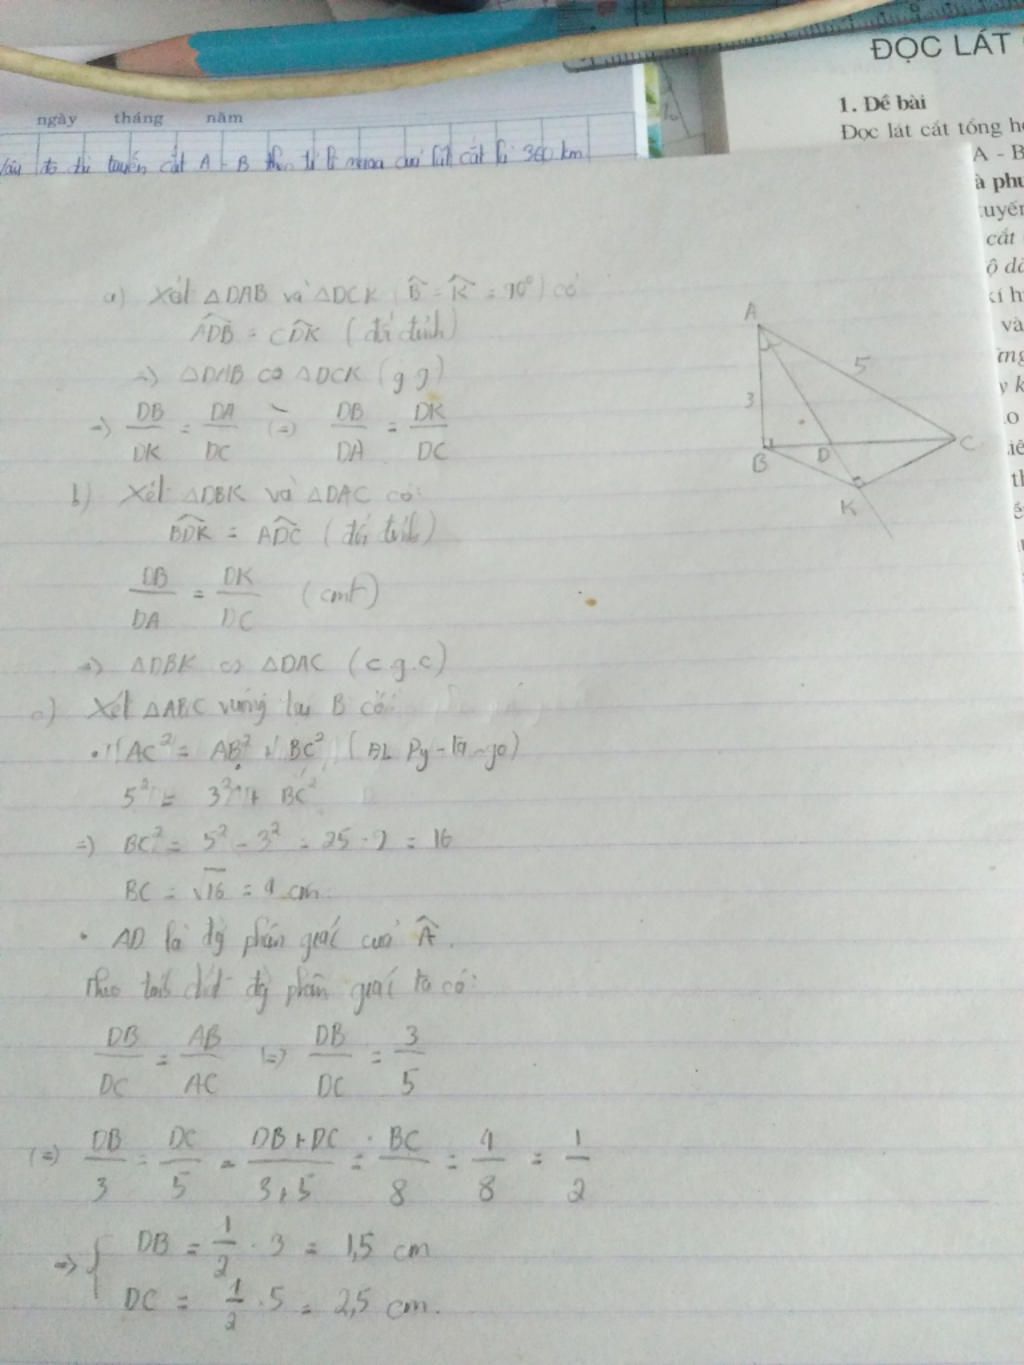 ĐỌC LÁT
1. Đề bài
Đọc lát cắt tổng h
A - B
à phu
tuyến
cắt
ộ dà
kí h
và
ừng
y k
ngày tháng năm
tuyến cắt A - B theo tỉ lệ cuả lát cắt là 360 km
a) Xét △DAB và △DCK (B̂ = K̂ = 90°) có
ADB̂ = CDK̂ (đối đỉnh)
=> △DAB ∽ △DCK (g g)
=> DB/DK = DA/DC (=) DB/DA = DK/DC
b) Xét △DBK và △DAC có:
BDK̂ = ADĈ (đối đỉnh)
DB/DA = DK/DC (cmt)
=> △DBK ∽ △DAC (c.g.c)
c) Xét △ABC vuông tại B có:
• AC² = AB² + BC² (ĐL Py-ta-go)
5² = 3² + BC²
=> BC² = 5² - 3² = 25 - 9 = 16
BC = √16 = 4 cm.
• AD là đg phân giác cuả Â.
Theo tính chất đg phân giác ta có:
DB/DC = AB/AC (=) DB/DC = 3/5
(=) DB/3 = DC/5 = DB+DC/3+5 = BC/8 = 4/8 = 1/2
=> { DB = 1/2 . 3 = 1,5 cm
DC = 1/2 . 5 = 2,5 cm.
A
5
3
B D C
K